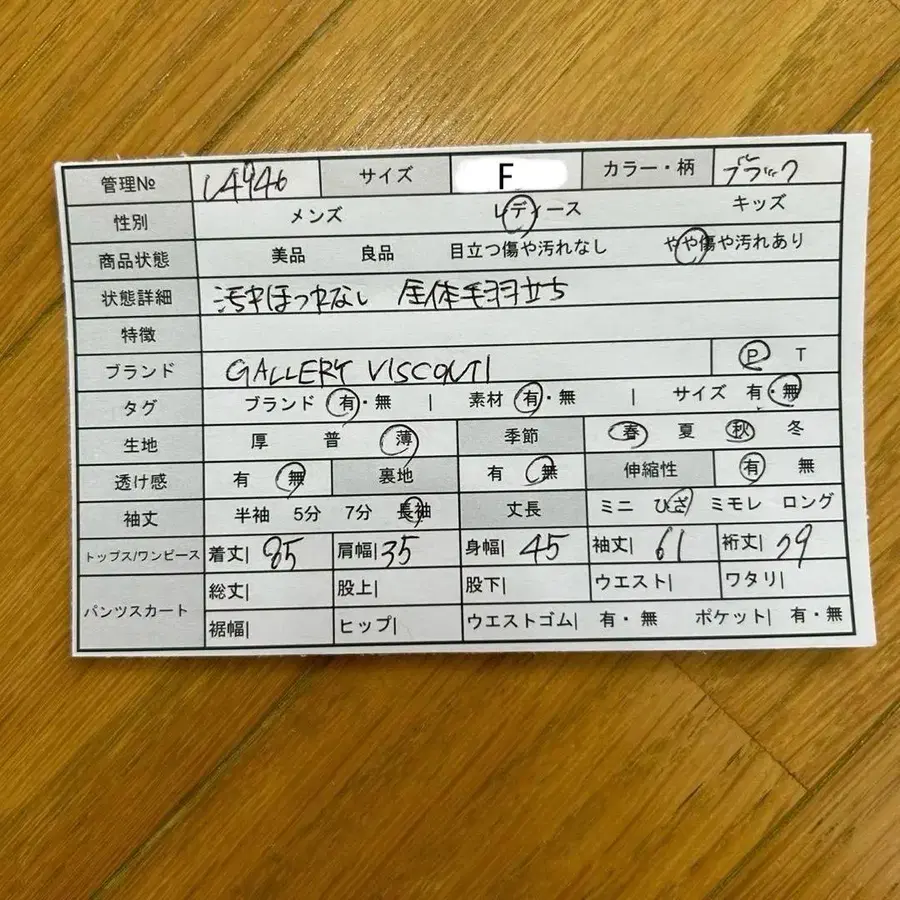 管理№ L4946 サイズ F カラー・柄 ブラック
性別 メンズ レディース キッズ
商品状態 美品 良品 目立つ傷や汚れなし やや傷や汚れあり
状態詳細 汚れほつれなし 全体毛羽立ち
特徴
ブランド GALLERY VISCONTI P T
タグ ブランド 有・無 | 素材 有・無 | サイズ 有・無
生地 厚 普 薄 季節 春 夏 秋 冬
透け感 有 無 裏地 有 無 伸縮性 有 無
袖丈 半袖 5分 7分 長袖 丈長 ミニ ひざ ミモレ ロング
トップス/ワンピース 着丈| 85 肩幅| 35 身幅| 45 袖丈| 61 裄丈| 79
パンツスカート 総丈| 股上| 股下| ウエスト| ワタリ|
裾幅| ヒップ| ウエストゴム| 有・無 ポケット| 有・無